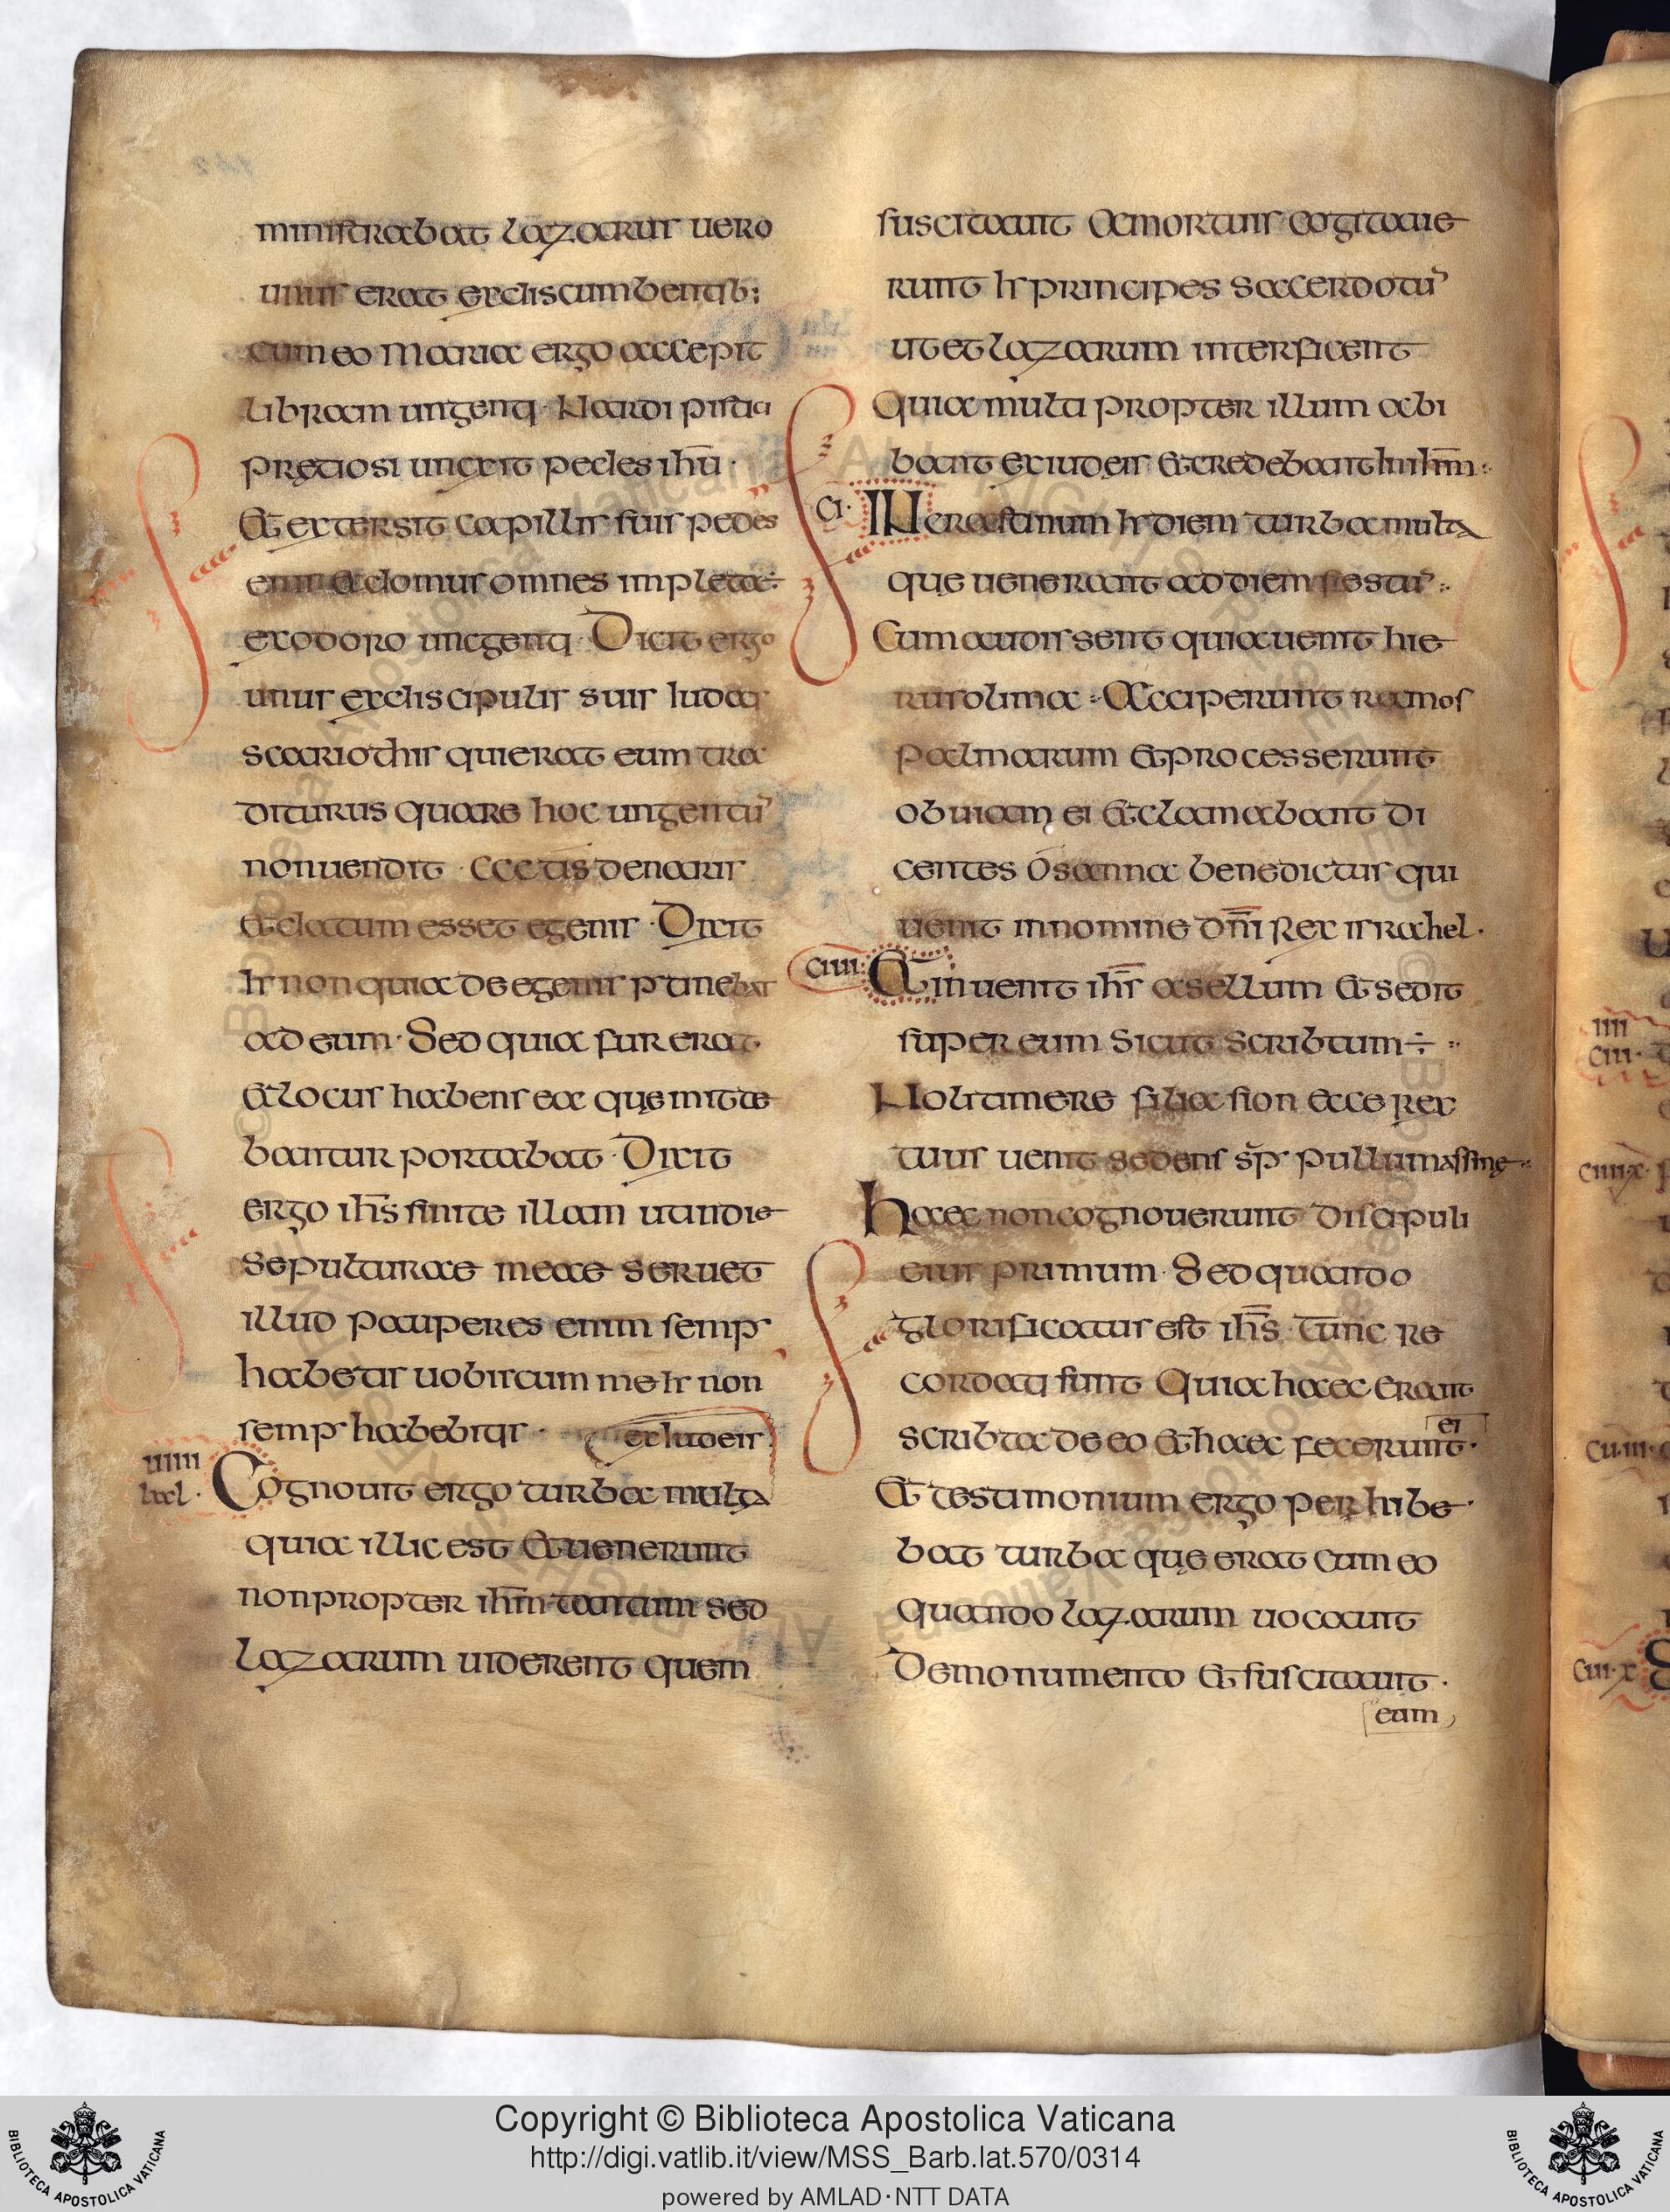 ministrabat lazarus uero
unus erat exdiscumbentib;
cum eo Maria ergo accepit
libram ungenti · Nardi pistici
pretiosi uncxit pedes ihū ·
Et extersit capillis suis pedes
eius & domus omnes impleta÷
exodoro uncgenti · Dicit ergo
unus exdiscipulis suis Iudas
scariothis quierat eum tra
diturus quare hoc ungentū
nonuendit · CCC tis denariis
&datum esset egenis · Dixit
h̓ non quia de egenis ptinebat
ad eum · Sed quia fur erat
& locus habens ea quę mitte
bantur portabat · Dixit
ergo ihs̄ sinite illam utindie
sepulturae meae seruet
illud pauperes enim semp
habetis uobiscum me h̓ non
semp habebitis ·
exIudeis
uiiii
lxl ·
Cognouit ergo turba multa
quia illic est & uenerunt
nonpropter ihm̄ tantum sed
lazarum uiderent quem
suscitauit Amortuis Cogitaue
runt h̓ principes sacerdotū
ut et lazarum interficent
Quia multi propter illum abi
bant exiudeis & credebant In ihm̄ :
CI ·
INcrastinum h̓ diem turba multa
quę uenerant ad diem festū :
Cum audissent quia uenit hie
rusolima : Acciperunt ramos
palmarum & processerunt
obuiam ei & clamabant di
centes Osanna benedictus qui
uenit in nomine dn̄i Rex israhel ·
CIIII
Et inuenit ihs̄ asellum & sedit
super eum Sicut Scribtum ÷ :
Noli timere filia sion ecce rex
tuus uenit sedens sp̄ pullum assinę :
haec non cognouerunt discipuli
eius primum · Sed quando
glorificatus est ihs̄ tunc re
cordati sunt Quia haec erant
scribta de eo & haec fecerunt ·
ei
Et testimonium ergo per hibe
bat turba quę erat cum eo
quando lazarum uocauit
Demonumento & suscitauit ·
eum
IIII
CIII ·
CIIII · x
CU · III ·
CUI · x
© Biblioteca Apostolica Vaticana ALL RIGHTS RESERVED
Copyright © Biblioteca Apostolica Vaticana
http://digi.vatlib.it/view/MSS_Barb.lat.570/0314
powered by AMLAD·NTT DATA
BIBLIOTECA APOSTOLICA VATICANA
BIBLIOTECA APOSTOLICA VATICANA